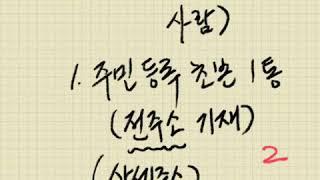 사람)
1. 주민등록 초본 1통
(전주소 기재)
(상세주소)
2